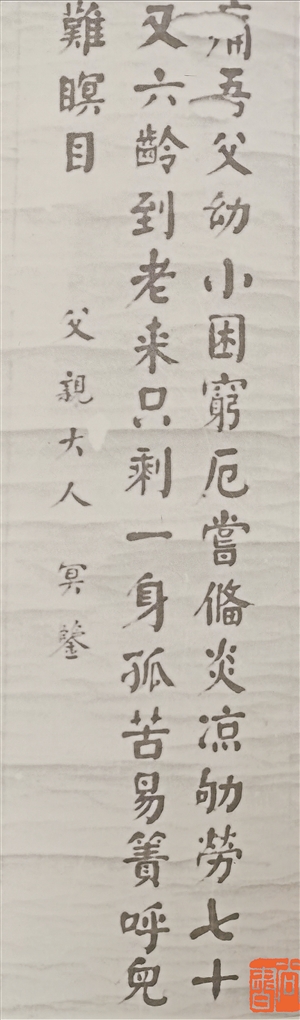 痛吾父幼小困窮厄嘗偹炎凉劬勞七十
又六齡到老来只剩一身孤苦易簀呼兒
難瞑目
父親大人 冥鑒